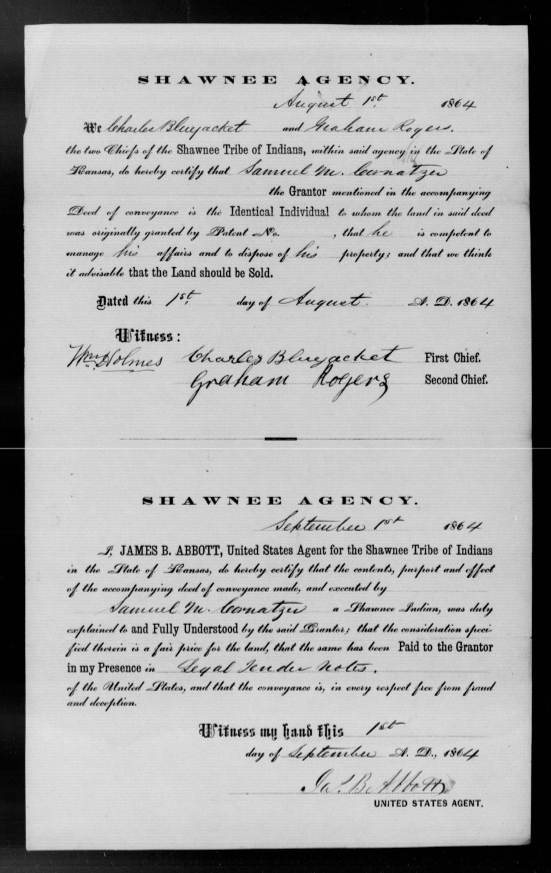 SHAWNEE AGENCY.
August 1st 1864
We Charles Bluejacket and Graham Rogers.
the two Chiefs of the Shawnee Tribe of Indians, within said agency in the State of
Kansas, do hereby certify that Samuel M. Cornatzer
the Grantor mentioned in the accompanying
Deed of conveyance is the Identical Individual to whom the land in said deed
was originally granted by Patent No. , that he is competent to
manage his affairs and to dispose of his property; and that we think
it advisable that the Land should be Sold.
Dated this 1st day of August. A. D. 1864
Witness:
Wm Holmes Charles Bluejacket First Chief.
Graham Rogers Second Chief.
SHAWNEE AGENCY.
September 1st 1864
I, JAMES B. ABBOTT, United States Agent for the Shawnee Tribe of Indians
in the State of Kansas, do hereby certify that the contents, purport and effect
of the accompanying deed of conveyance made, and executed by
Samuel M. Cornatzer a Shawnee Indian, was duly
explained to and Fully Understood by the said Grantor; that the consideration speci-
fied therein is a fair price for the land, that the same has been Paid to the Grantor
in my Presence in Legal Tender Notes.
of the United States, and that the conveyance is, in every respect free from fraud
and deception.
Witness my hand this 1st
day of September A. D., 1864
Jas. B. Abbott
UNITED STATES AGENT.